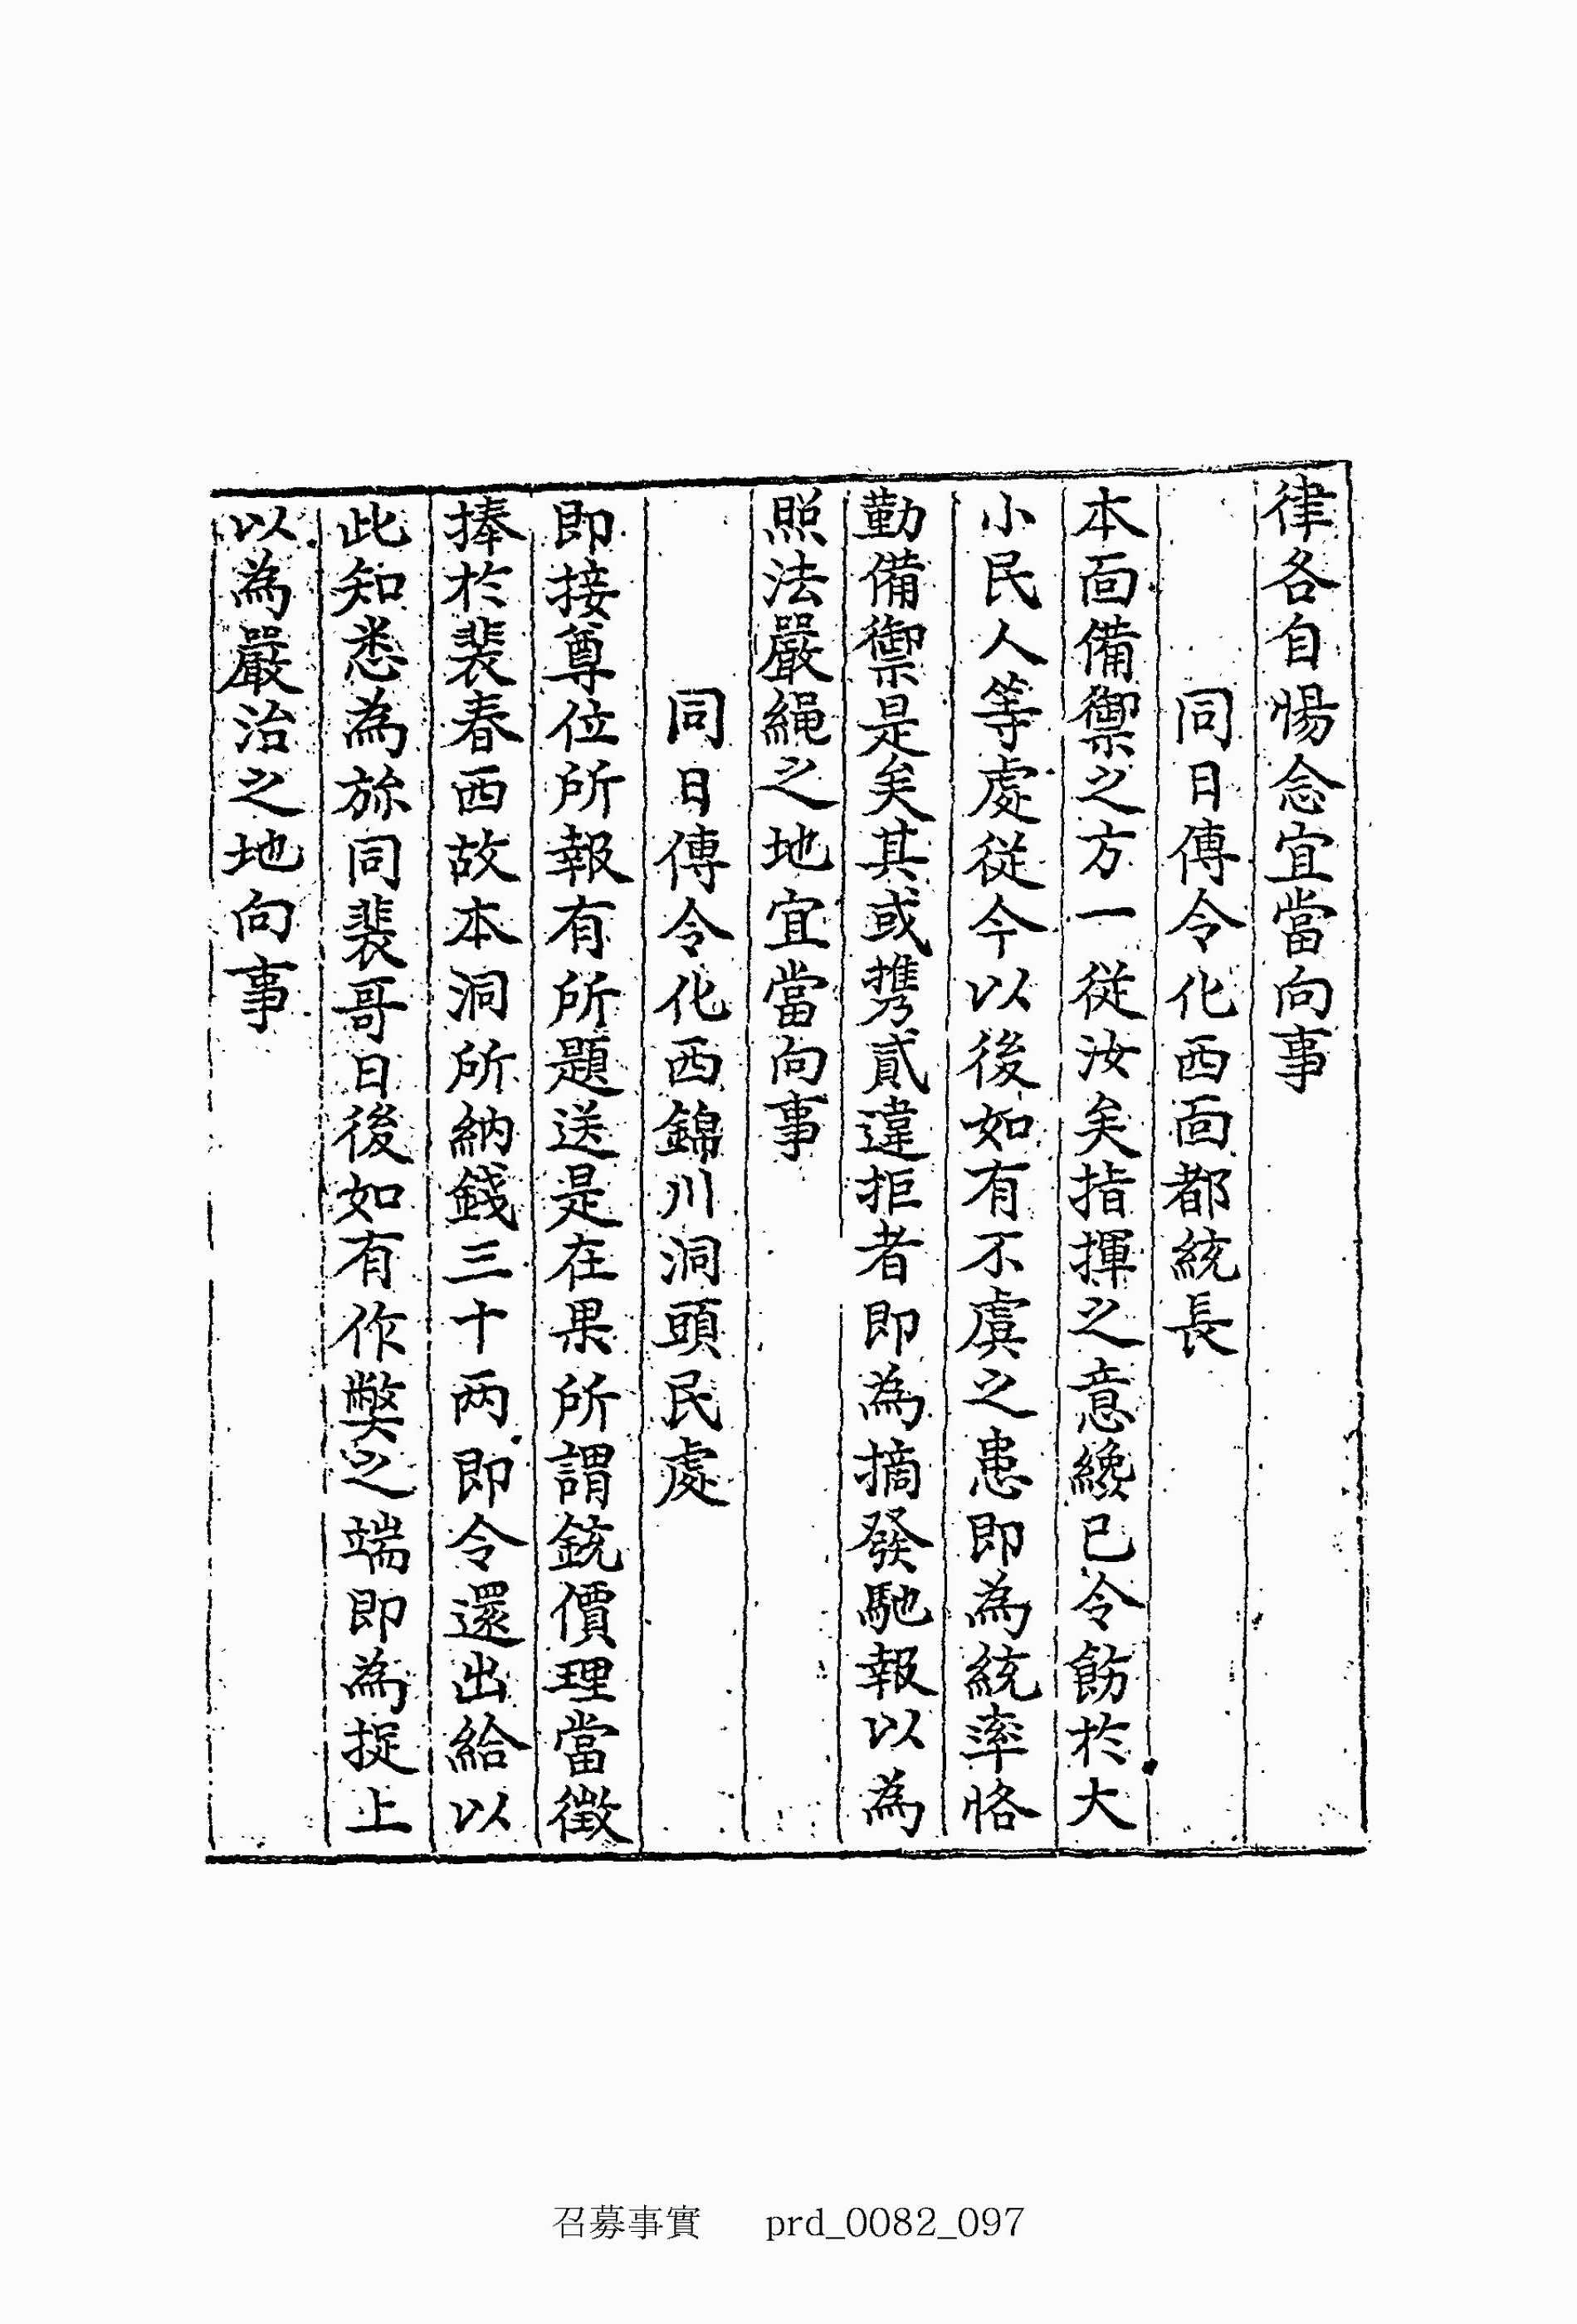 律各自惕念宜當向事
同日傳令化西面都統長
本面備禦之方一從汝矣指揮之意纔已令飭於大
小民人等處從今以後如有不虞之患即為統率恪
勤備禦是矣其或携貳違拒者即為摘發馳報以為
照法嚴繩之地宜當向事
同日傳令化西錦川洞頭民處
即接尊位所報有所題送是在果所謂銃價理當徵
捧於裴春西故本洞所納錢三十两即令還出給以
此知悉為旀同裴哥日後如有作弊之端即為捉上
以為嚴治之地向事
召募事實 prd_0082_097